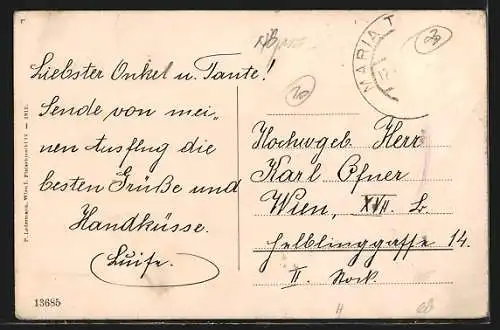 Liebster Onkel u. Tante!
Sende von mei„
nen Ausflug die
besten Grüße und
Handküsse.
Luise.
MARIA T
Hochwgeb. Herr
Karl Ofner
Wien, XVII. b
Helblinggasse 14.
II. Stock.
P. Ledermann, Wien I, Fleischmarkt 12 — 1912.
13685
20